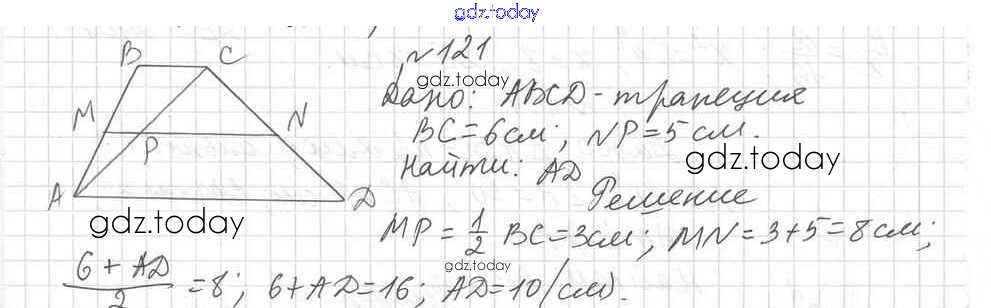 gdz.today
№121
gdz.today
Дано: ABCD - трапеция
BC = 6 см; NP = 5 см.
gdz.today
Найти: AD
Решение
B C
M N
P
A D
gdz.today
MP = 1/2 BC = 3 см; MN = 3 + 5 = 8 см;
gdz.today
(6 + AD)/2 = 8; 6 + AD = 16; AD = 10 (см).